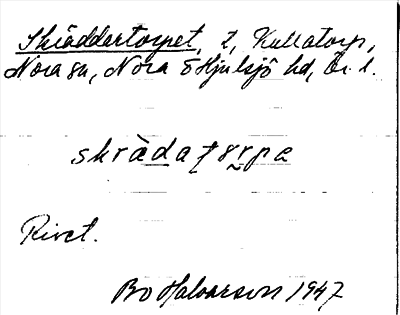 Skräddartorpet, t, Kullatorp,
Nora sn, Nora o Hjulsjö hd, Ör. l.
skràdatørpe
Rivet.
Bo Halvarson 1947